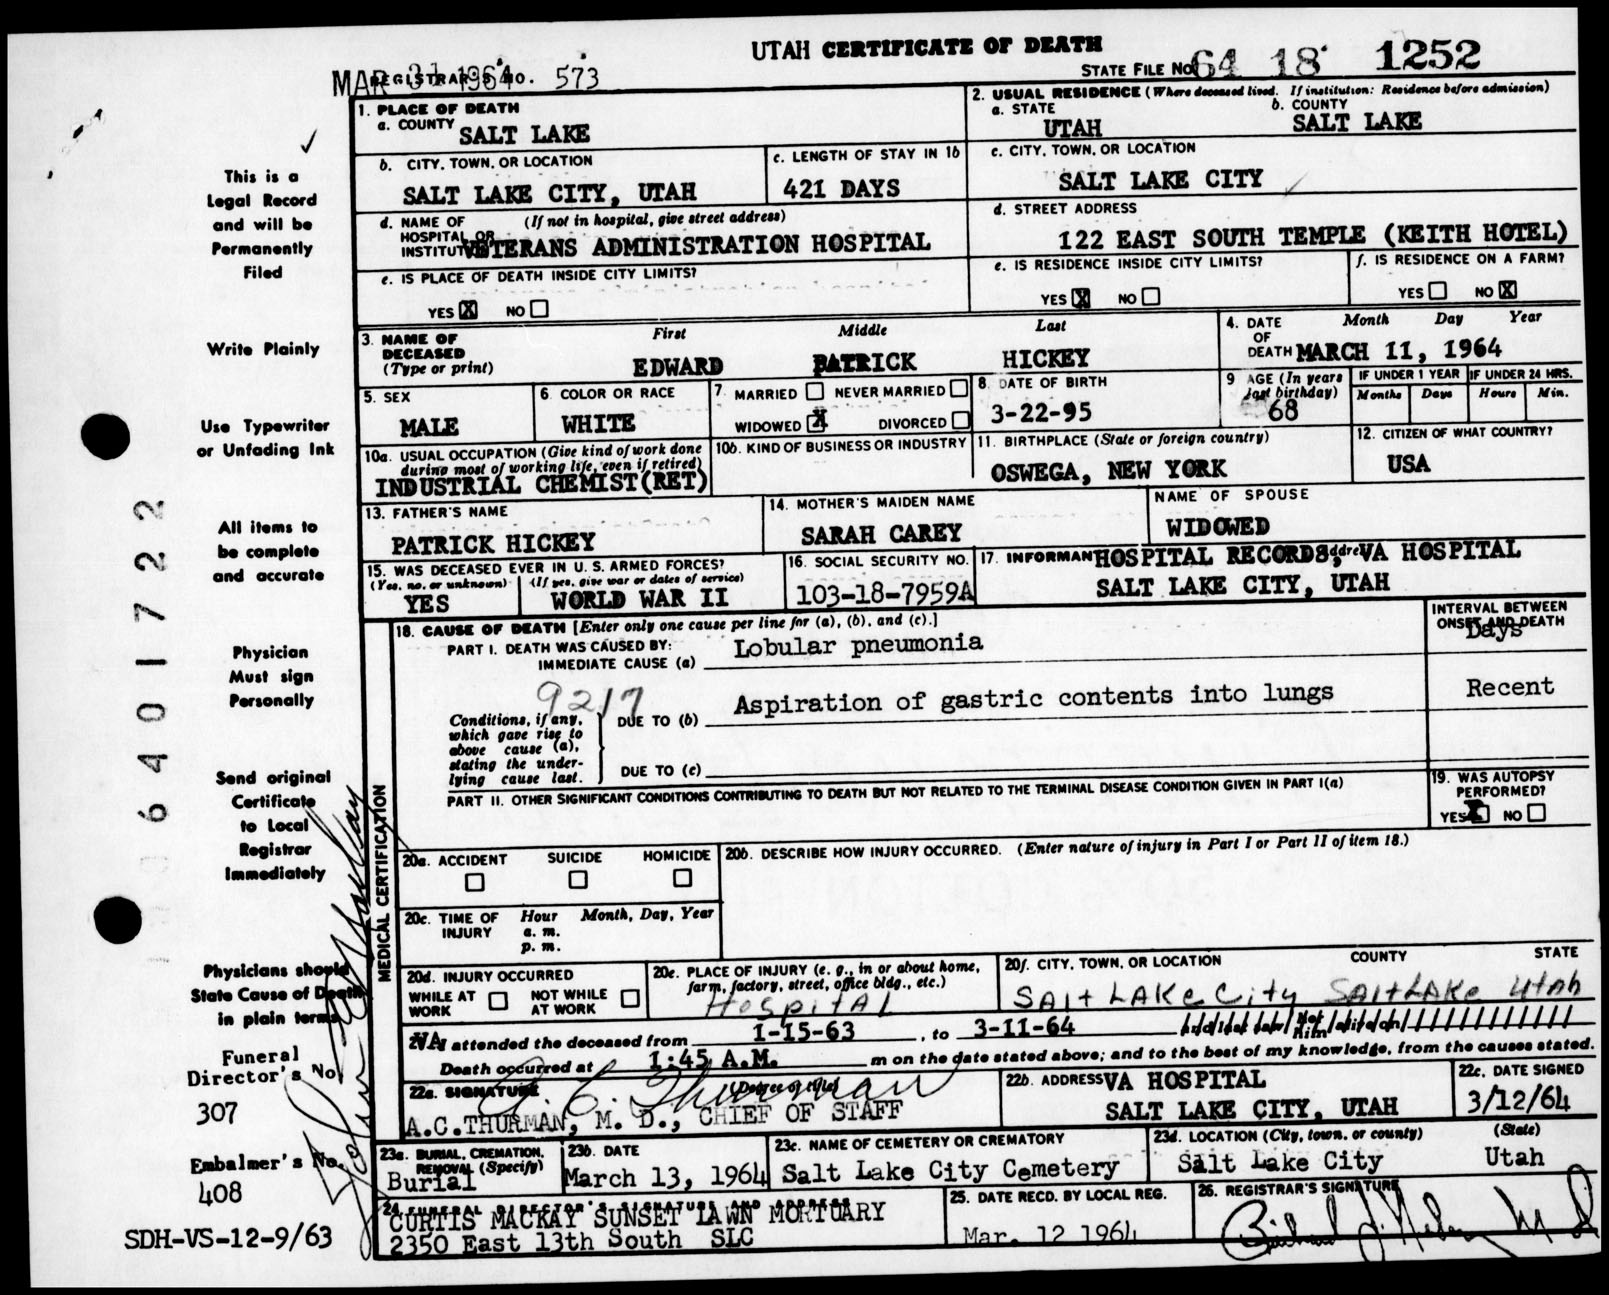 UTAH CERTIFICATE OF DEATH
MAR 31 1964
REGISTRAR'S NO. 573
STATE FILE NO. 64 18 1252
1. PLACE OF DEATH
a. COUNTY SALT LAKE
2. USUAL RESIDENCE (Where deceased lived. If institution: Residence before admission)
a. STATE UTAH
b. COUNTY SALT LAKE
b. CITY, TOWN, OR LOCATION
SALT LAKE CITY, UTAH
c. LENGTH OF STAY IN 1b
421 DAYS
c. CITY, TOWN, OR LOCATION
SALT LAKE CITY
d. NAME OF HOSPITAL OR INSTITUTION (If not in hospital, give street address)
VETERANS ADMINISTRATION HOSPITAL
d. STREET ADDRESS
122 EAST SOUTH TEMPLE (KEITH HOTEL)
e. IS PLACE OF DEATH INSIDE CITY LIMITS?
YES X NO
e. IS RESIDENCE INSIDE CITY LIMITS?
YES X NO
f. IS RESIDENCE ON A FARM?
YES NO X
3. NAME OF DECEASED (Type or print)
First Middle Last
EDWARD PATRICK HICKEY
4. DATE OF DEATH Month Day Year
MARCH 11, 1964
5. SEX
MALE
6. COLOR OR RACE
WHITE
7. MARRIED NEVER MARRIED
WIDOWED X DIVORCED
8. DATE OF BIRTH
3-22-95
9. AGE (In years last birthday)
68
IF UNDER 1 YEAR
Months Days
IF UNDER 24 HRS.
Hours Min.
10a. USUAL OCCUPATION (Give kind of work done during most of working life, even if retired)
INDUSTRIAL CHEMIST(RET)
10b. KIND OF BUSINESS OR INDUSTRY
11. BIRTHPLACE (State or foreign country)
OSWEGA, NEW YORK
12. CITIZEN OF WHAT COUNTRY?
USA
13. FATHER'S NAME
PATRICK HICKEY
14. MOTHER'S MAIDEN NAME
SARAH CAREY
NAME OF SPOUSE
WIDOWED
15. WAS DECEASED EVER IN U. S. ARMED FORCES?
(Yes, no, or unknown) (If yes, give war or dates of service)
YES WORLD WAR II
16. SOCIAL SECURITY NO.
103-18-7959A
17. INFORMANT HOSPITAL RECORDS, VA HOSPITAL
SALT LAKE CITY, UTAH
MEDICAL CERTIFICATION
18. CAUSE OF DEATH [Enter only one cause per line for (a), (b), and (c).]
INTERVAL BETWEEN ONSET AND DEATH
PART I. DEATH WAS CAUSED BY:
IMMEDIATE CAUSE (a) Lobular pneumonia
Days
9217
Conditions, if any, which gave rise to above cause (a), stating the underlying cause last.
DUE TO (b) Aspiration of gastric contents into lungs
Recent
DUE TO (c)
PART II. OTHER SIGNIFICANT CONDITIONS CONTRIBUTING TO DEATH BUT NOT RELATED TO THE TERMINAL DISEASE CONDITION GIVEN IN PART I(a)
19. WAS AUTOPSY PERFORMED?
YES X NO
20a. ACCIDENT SUICIDE HOMICIDE
20b. DESCRIBE HOW INJURY OCCURRED. (Enter nature of injury in Part I or Part II of item 18.)
20c. TIME OF INJURY Hour Month, Day, Year
a. m.
p. m.
20d. INJURY OCCURRED
WHILE AT WORK NOT WHILE AT WORK
20e. PLACE OF INJURY (e. g., in or about home, farm, factory, street, office bldg., etc.)
Hospital
20f. CITY, TOWN, OR LOCATION COUNTY STATE
Salt Lake City Salt Lake Utah
VA attended the deceased from 1-15-63, to 3-11-64
Death occurred at 1:45 A.M. m on the date stated above; and to the best of my knowledge, from the causes stated.
22a. SIGNATURE (Degree or title)
A. C. Thurman
A.C.THURMAN, M. D., CHIEF OF STAFF
22b. ADDRESS VA HOSPITAL
SALT LAKE CITY, UTAH
22c. DATE SIGNED
3/12/64
23a. BURIAL, CREMATION, REMOVAL (Specify)
Burial
23b. DATE
March 13, 1964
23c. NAME OF CEMETERY OR CREMATORY
Salt Lake City Cemetery
23d. LOCATION (City, town, or county) (State)
Salt Lake City Utah
24. FUNERAL DIRECTOR'S SIGNATURE AND ADDRESS
CURTIS MACKAY SUNSET LAWN MORTUARY
2350 East 13th South SLC
25. DATE RECD. BY LOCAL REG.
Mar. 12 1964
26. REGISTRAR'S SIGNATURE
This is a
Legal Record
and will be
Permanently
Filed
Write Plainly
Use Typewriter
or Unfading Ink
All items to
be complete
and accurate
Physician
Must sign
Personally
Send original
Certificate
to Local
Registrar
Immediately
Physicians should
State Cause of Death
in plain terms
Funeral
Director's No.
307
Embalmer's No.
408
SDH-VS-12-9/63
6401722